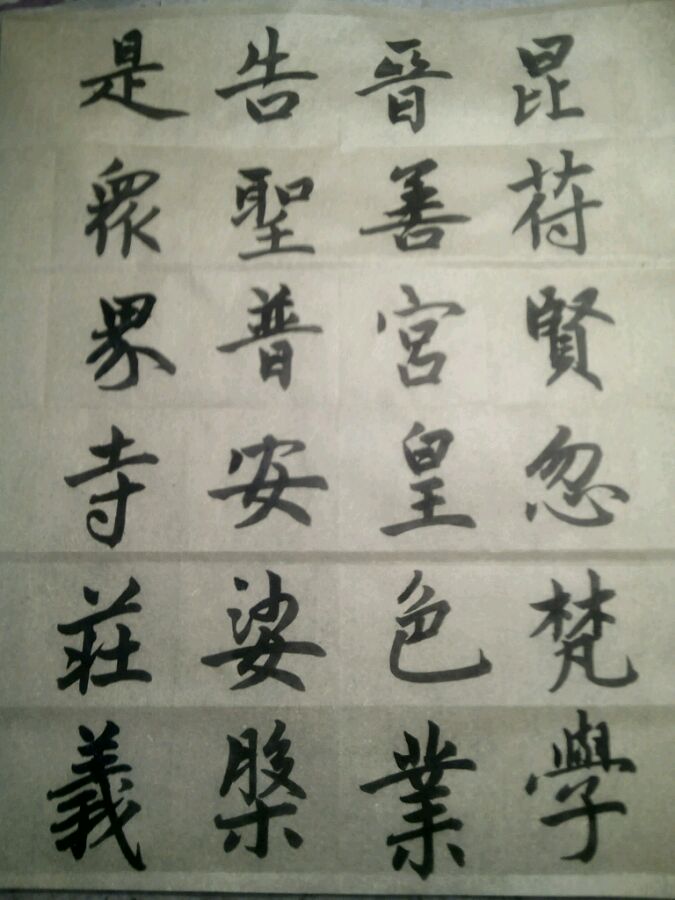 昆苻賢忽梵學
晉善宮皇色業
告聖普安娑槃
是眾界寺莊義